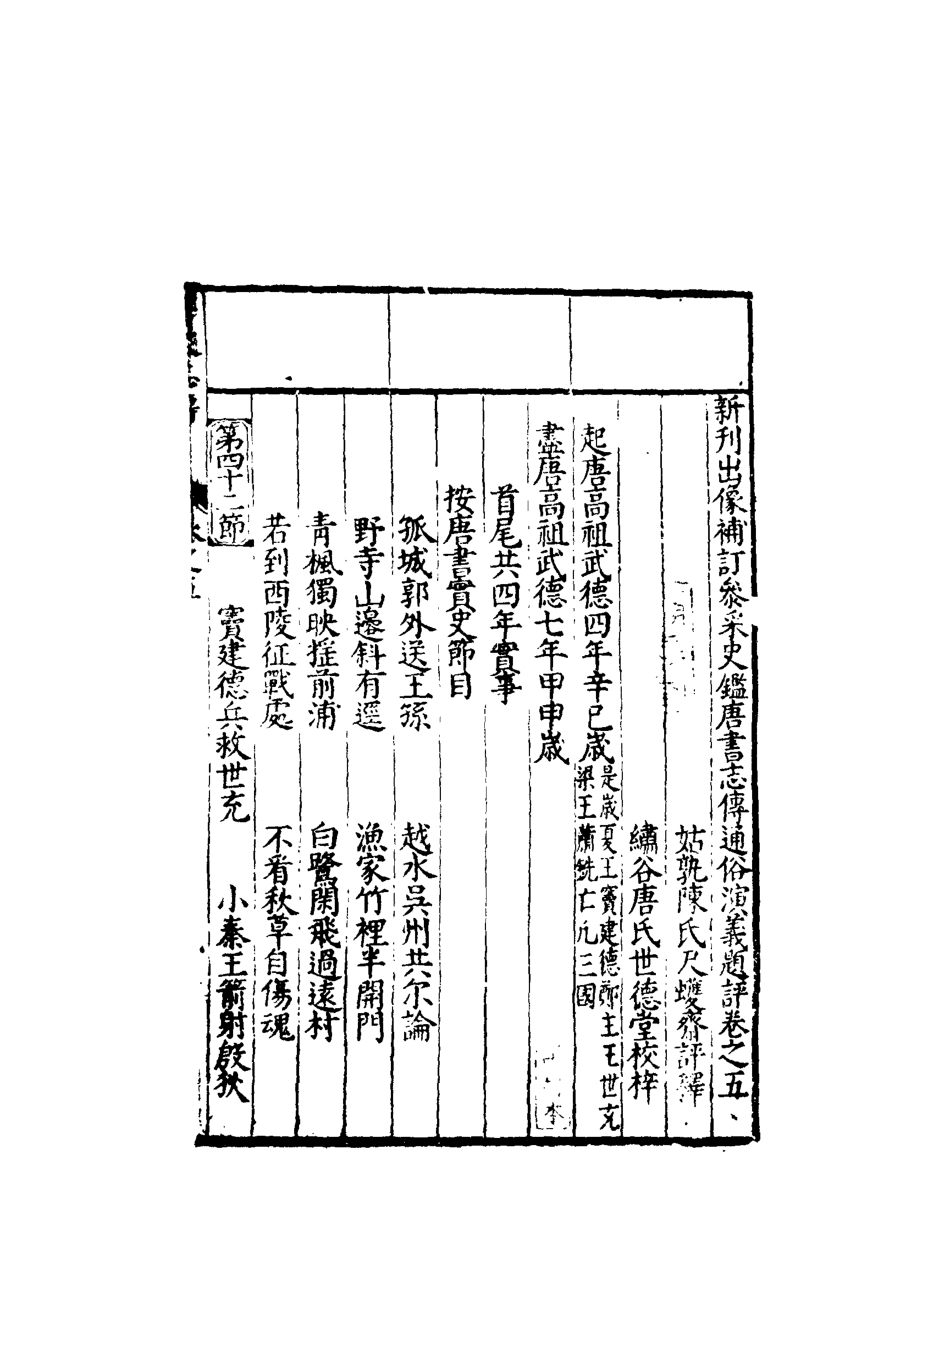 新刊出像補訂參采史鑑唐書志傳通俗演義題評卷之五
姑孰陳氏尺蠖齋評釋
繡谷唐氏世德堂校梓
起唐高祖武德四年辛巳歲是歲夏王竇建德鄭主王世充
梁王蕭銑亡凡三國
盡唐高祖武德七年甲申歲
首尾共四年實事
按唐書實史節目
孤城郭外送王孫 越水吳州共尔論
野寺山邉斜有逕 漁家竹裡半開門
青楓獨映揺前浦 白鷺閑飛過遠村
若到西陵征戰處 不看秋草自傷魂
第四十二節 竇建德兵救世充 小秦王箭射殷狄